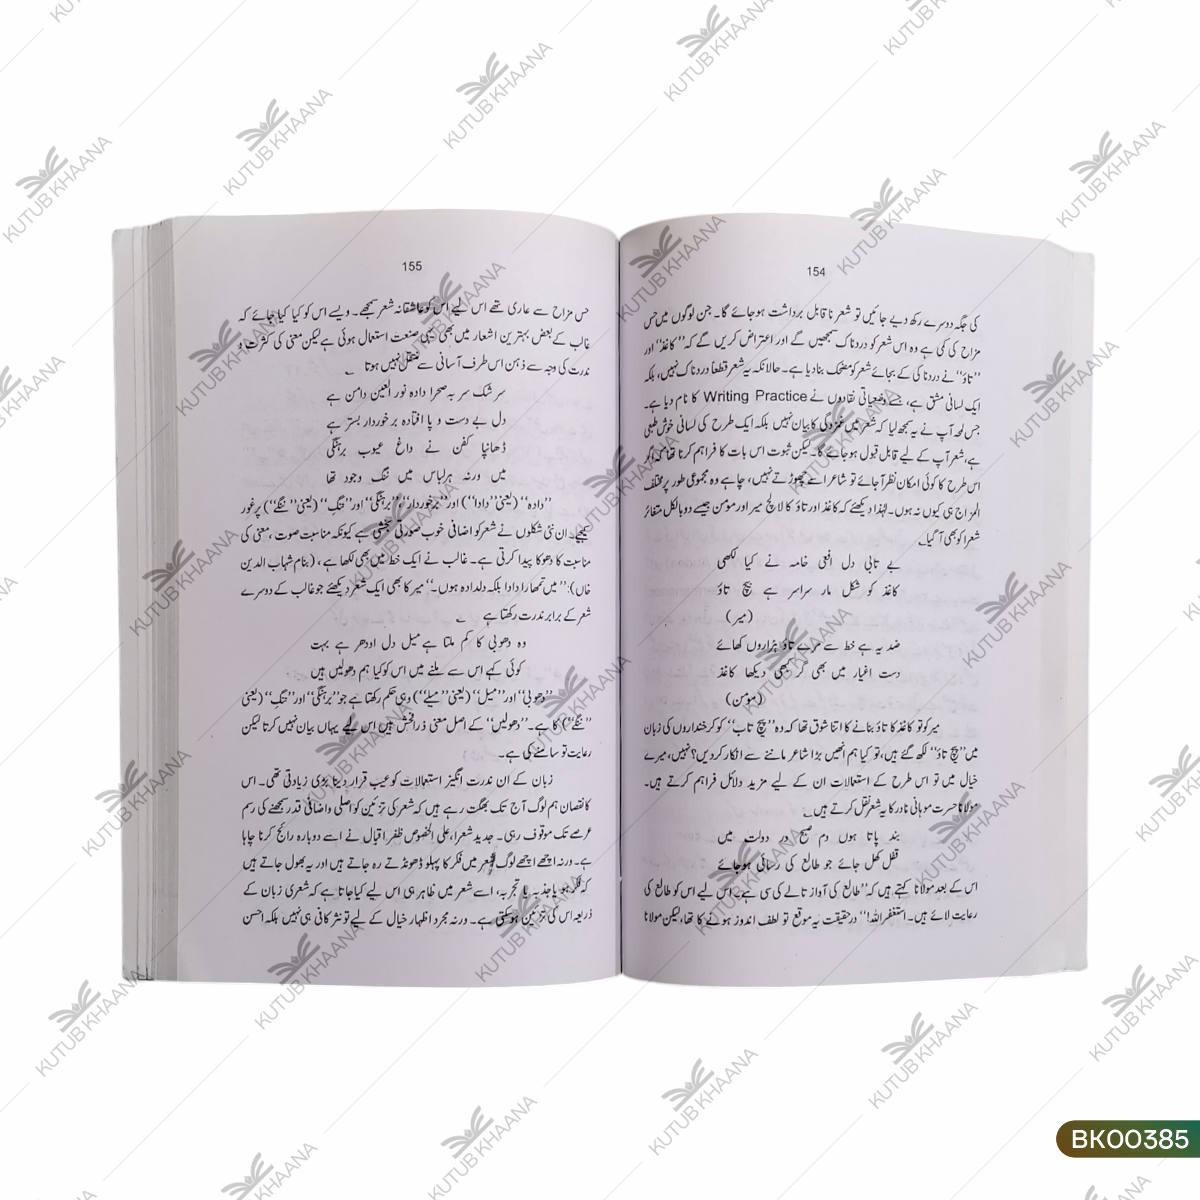 154
کی جگہ دوسرے رکھ دیے جائیں تو شعر ناقابل برداشت ہوجائے گا۔ جن لوگوں میں حس
مزاح کی کمی ہے وہ اس شعر کو دردناک سمجھیں گے اور اعتراض کریں گے کہ ”کاغذ“ اور
”تاؤ“ نے دردناکی کے بجائے شعر کو مضحک بنادیا ہے۔ حالانکہ یہ شعر قطعاً دردناک نہیں، بلکہ
ایک لسانی مشق ہے، جسے وضعیاتی نقادوں نے Writing Practice کا نام دیا ہے۔
جس لمحہ آپ نے یہ سمجھ لیا کہ شعر میں غمزدگی کا بیان نہیں بلکہ ایک طرح کی لسانی خوش طبعی
ہے، شعر آپ کے لیے قابل قبول ہوجائے گا۔ لیکن ثبوت اس بات کا فراہم کرنا تھا کہ اگر
اس طرح کا کوئی امکان نظر آجائے تو شاعر اسے چھوڑتے نہیں، چاہے وہ مجموعی طور پر مختلف
المزاج ہی کیوں نہ ہوں۔ لہٰذا دیکھئے کہ کاغذ اور تاؤ کا لالچ میر اور مومن جیسے دو بالکل متغائر
شعرا کو بھی آ گیا۔
بے تابی دل افعی خامہ نے کیا لکھی
کاغذ کو شکل مار سراسر ہے پیچ تاؤ
(میر)
ضد یہ ہے خط سے مرے تاؤ ہزاروں کھائے
دست اغیار میں بھی گر کبھی دیکھا کاغذ
(مومن)
میر کو تو کاغذ کا تاؤ بنانے کا اتنا شوق تھا کہ وہ ”پیچ تاب“ کو کرخنداروں کی زبان
میں ”پیچ تاؤ“ لکھ گئے ہیں، تو کیا ہم انھیں بڑا شاعر ماننے سے انکار کردیں؟ نہیں، میرے
خیال میں تو اس طرح کے استعمالات ان کے لیے مزید دلائل فراہم کرتے ہیں۔
مولانا حسرت موہانی نادر کا یہ شعر نقل کرتے ہیں۔
بند پاتا ہوں دم صبح در دولت میں
قفل کھل جائے جو طالع کی رسائی ہوجائے
اس کے بعد مولانا کہتے ہیں کہ ”طالع کی آواز تالے کی سی ہے۔ اس لیے اس کو طالع کی
رعایت لائے ہیں۔ استغفراللہ!“ درحقیقت یہ موقع تو لطف اندوز ہونے کا تھا، لیکن مولانا
155
حس مزاح سے عاری تھے اس لیے اس کو عاشقانہ شعر سمجھے۔ ویسے اس کو کیا کیا جائے کہ
غالب کے بعض بہترین اشعار میں بھی یہی صنعت استعمال ہوئی ہے لیکن معنی کی کثرت و
ندرت کی وجہ سے ذہن اس طرف آسانی سے منتقل نہیں ہوتا
سرشک سر بہ صحرا دادہ نور العین دامن ہے
دل بے دست و پا افتادہ برخوردار بستر ہے
ڈھانپا کفن نے داغ عیوب برہنگی
میں ورنہ ہر لباس میں ننگ وجود تھا
”دادہ“ (یعنی ”دادا“) اور ”برخوردار“، ”برہنگی“ اور ”ننگ“ (یعنی ”ننگے“) پر غور
کیجئے۔ ان نئی شکلوں نے شعر کو اضافی خوب صورتی بخشی ہے کیونکہ مناسبت صوت، معنی کی
مناسبت کا دھوکا پیدا کرتی ہے۔ غالب نے ایک خط میں بھی لکھا ہے، (بنام شہاب الدین
خاں): ”میں تمھارا دادا بلکہ دلدادہ ہوں۔“ میر کا بھی ایک شعر دیکھئے جو غالب کے دوسرے
شعر کے برابر ندرت رکھتا ہے
وہ دھوبی کا کم ملتا ہے میل دل اودھر ہے بہت
کوئی کہے اس سے ملنے میں اس کو کیا ہم دھولیں ہیں
”دھوبی“ اور ”میل“ (یعنی ”میلے“) وہی حکم رکھتا ہے جو ”برہنگی“ اور ”ننگ“ (یعنی
”ننگے“) کا ہے۔ ”دھولیں“ کے اصل معنی ذرا فحش ہیں اس لیے یہاں بیان نہیں کرتا لیکن
رعایت تو سامنے کی ہے۔
زبان کے ان ندرت انگیز استعمالات کو عیب قرار دینا بڑی زیادتی تھی۔ اس
کا نقصان ہم لوگ آج تک بھگت رہے ہیں کہ شعر کی تزئین کو اصلی و اضافی قدر سمجھنے کی رسم
عرصے تک موقوف رہی۔ جدید شعرا، علی الخصوص ظفر اقبال نے اسے دوبارہ رائج کرنا چاہا
ہے۔ ورنہ اچھے اچھے لوگ شعر میں فکر کا پہلو ڈھونڈتے رہ جاتے ہیں اور یہ بھول جاتے ہیں
کہ فکر ہو یا جذبہ یا تجربہ، اسے شعر میں ظاہر ہی اس لیے کیا جاتا ہے کہ شعری زبان کے
ذریعہ اس کی تزئین ہوسکتی ہے۔ ورنہ مجرد اظہار خیال کے لیے تو نثر کافی ہی نہیں بلکہ احسن
KUTUB KHAANA
BK00385